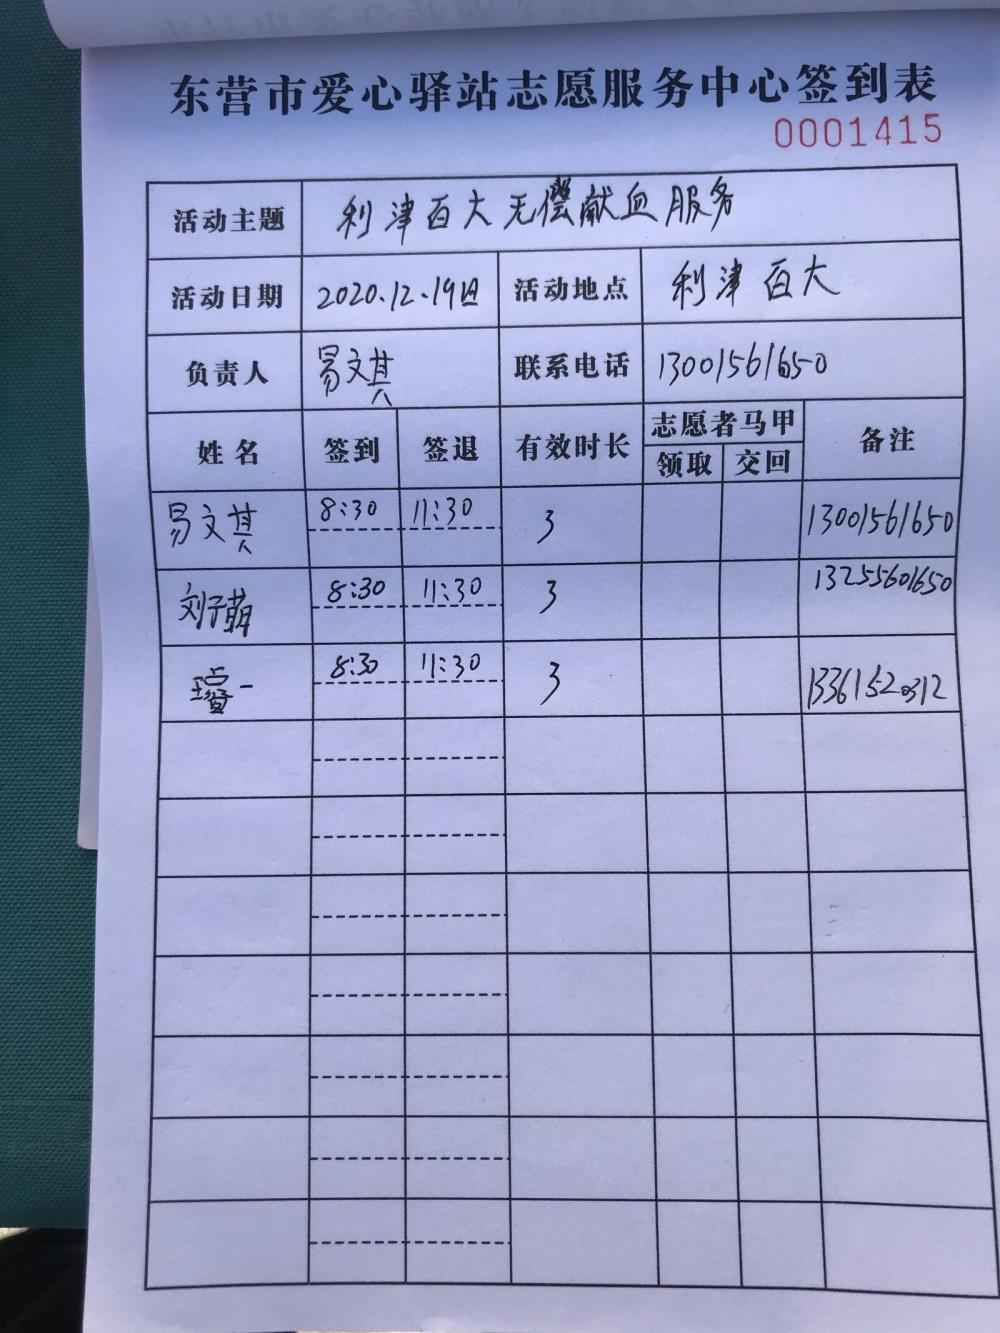 东营市爱心驿站志愿服务中心签到表
0001415
活动主题 利津百大无偿献血服务
活动日期 2020.12.19日 活动地点 利津百大
负责人 易文其 联系电话 13001561650
姓名 签到 签退 有效时长 志愿者马甲 备注
领取 交回
易文其 8:30 11:30 3 13001561650
刘子萌 8:30 11:30 3 13255601650
8:30 11:30 3 13361520312